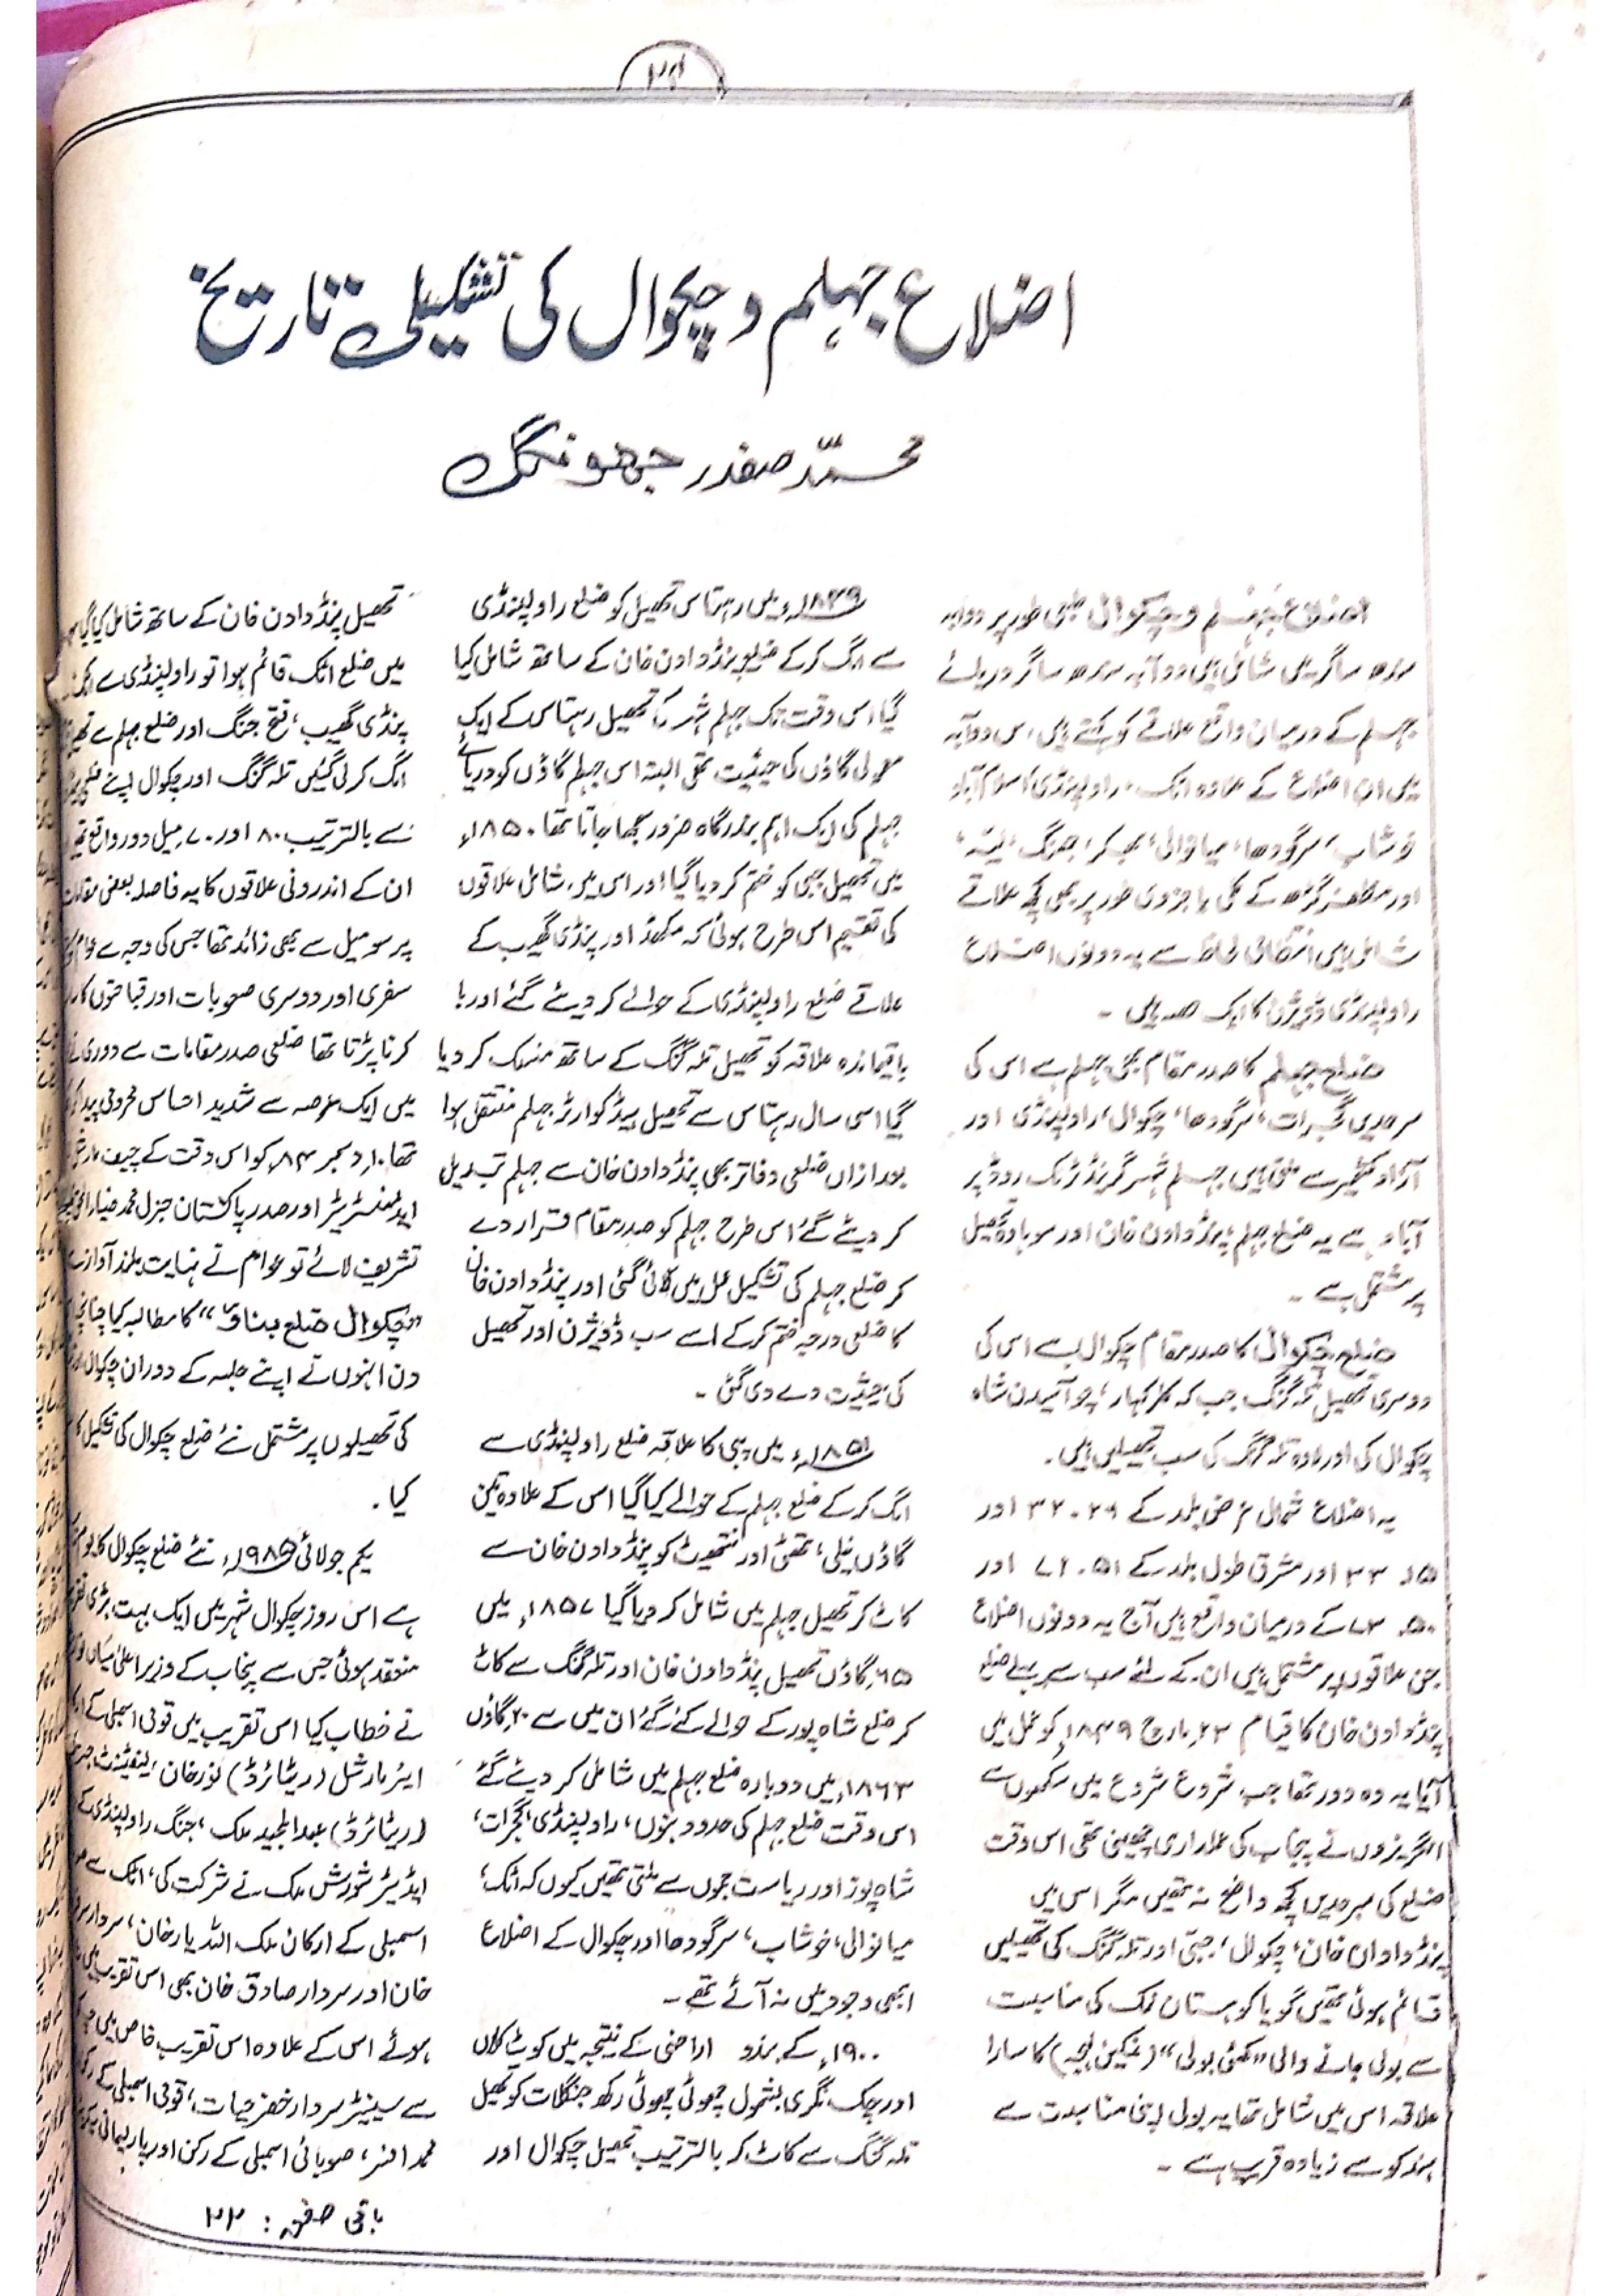 ۲۴
اضلاع جہلم و چکوال کی تشکیلی تاریخ
محمّد صفدر جھونگک
اضلاع جہلم و چکوال طبعی طور پر دوابہ
سندھ ساگر میں شامل ہیں دوآبہ سندھ ساگر دریائے
جہلم کے درمیان واقع علاقے کو کہتے ہیں، اس دوآبہ
میں ان اضلاع کے علاوہ اٹک، راولپنڈی، اسلام آباد
خوشاب، سرگودھا، میانوالی، بھکر، جھنگ، لیّہ،
اور مظفر گڑھ کے کلی یا جزوی طور پر بھی کچھ علاقے
شامل ہیں انتظامی لحاظ سے یہ دونوں اضلاع
راولپنڈی ڈویژن کا ایک حصہ ہیں ۔
ضلع جہلم کا صدر مقام بھی جہلم ہے اس کی
سرحدیں گجرات، سرگودھا، چکوال، راولپنڈی اور
آزاد کشمیر سے ملتی ہیں جہلم شہر گرینڈ ٹرنک روڈ پر
آباد ہے یہ ضلع جہلم، پنڈ دادن خان اور سوہاوہ تحصیل
پر مشتمل ہے ۔
ضلع چکوال کا صدر مقام چکوال ہے اس کی
دوسری تحصیل تلہ گنگ جب کہ کلر کہار، چوآسیدن شاہ
چکوال کی اور لاوہ تلہ گنگ کی سب تحصیلیں ہیں۔
یہ اضلاع شمالی عرض بلد کے ۲۶ . ۳۲ اور
۱۵ . ۳۳ اور مشرقی طول بلد کے ۵۱ . ۷۱ اور
۵۰ . ۷۳ کے درمیان واقع ہیں آج یہ دونوں اضلاع
جن علاقوں پر مشتمل ہیں ان کے لئے سب سے پہلے ضلع
پنڈ دادن خان کا قیام ۲۳ مارچ ۱۸۴۹ء کو عمل میں
آیا یہ وہ دور تھا جب شروع شروع میں سکھوں سے
انگریزوں نے پنجاب کی عملداری چھینی تھی اس وقت
ضلع کی سرحدیں کچھ واضح نہ تھیں مگر اس میں
پنڈ دادن خان، چکوال، جبّی اور تلہ گنگ کی تحصیلیں
قائم ہوئی تھیں گویا کوہستان نمک کی مناسبت
سے بولی جانے والی “ (نمکین لہجہ) کا سارا
علاقہ اس میں شامل تھا یہ بولی اپنی مناسبت سے
ہندکو سے زیادہ قریب ہے ۔
۱۸۴۹ء میں رہتاس تحصیل کو ضلع راولپنڈی
سے الگ کر کے ضلع پنڈ دادن خان کے ساتھ شامل کیا
گیا اس وقت تک جہلم شہر کو تحصیل رہتاس کے ایک
معمولی گاؤں کی حیثیت تھی البتہ اس جہلم گاؤں کو دریائے
جہلم کی ایک اہم بندرگاہ ضرور سمجھا جاتا تھا ۱۸۵۰ء
میں تحصیل جبی کو ختم کر دیا گیا اور اس میں شامل علاقوں
کی تقسیم اس طرح ہوئی کہ مکھڈ اور پنڈی گھیب کے
علاقے ضلع راولپنڈی کے حوالے کر دیئے گئے اور با
باقیماندہ علاقہ کو تحصیل تلہ گنگ کے ساتھ منسلک کر دیا
گیا اسی سال رہتاس سے تحصیل ہیڈ کوارٹر جہلم منتقل ہوا
بعد ازاں ضلعی دفاتر بھی پنڈ دادن خان سے جہلم تبدیل
کر دیئے گئے اس طرح جہلم کو صدر مقام قرار دے
کر ضلع جہلم کی تشکیل عمل میں لائی گئی اور پنڈ دادن خان
کا ضلعی درجہ ختم کر کے اسے سب ڈویژن اور تحصیل
کی حیثیت دے دی گئی ۔
۱۸۵۱ء میں پبی کا علاقہ ضلع راولپنڈی سے
الگ کر کے ضلع جہلم کے حوالے کیا گیا اس کے علاوہ تین
گاؤں نیلی، تھٹی اور نتھیوٹ کو پنڈ دادن خان سے
کاٹ کر تحصیل جہلم میں شامل کر دیا گیا ۱۸۵۷ء میں
۶۵ گاؤں تحصیل پنڈ دادن خان اور تلہ گنگ سے کاٹ
کر ضلع شاہ پور کے حوالے کئے گئے ان میں سے ۲۰ گاؤں
۱۸۶۳ء میں دوبارہ ضلع جہلم میں شامل کر دیئے گئے
اس وقت ضلع جہلم کی حدود بنوں، راولپنڈی، گجرات،
شاہ پور اور ریاست جموں سے ملتی تھیں کیوں کہ اٹک،
میانوالی، خوشاب، سرگودھا اور چکوال کے اضلاع
ابھی وجود میں نہ آئے تھے ۔
۱۹۰۰ء کے بندو اراضی کے نتیجہ میں کوٹ کلاں
اور چک نگری بشمول چھوٹی چھوٹی رکھ جنگلات کو تحصیل
تلہ گنگ سے کاٹ کر بالترتیب تحصیل چکوال اور
تحصیل پنڈ دادن خان کے ساتھ شامل کیا گیا
میں ضلع اٹک قائم ہوا تو راولپنڈی سے اٹک
پنڈی گھیب، فتح جنگ اور ضلع جہلم سے
الگ کر لی گئیں تلہ گنگ اور چکوال اپنے
سے بالترتیب ۸۰ اور ۷۰ میل دور واقع
ان کے اندرونی علاقوں کا یہ فاصلہ بعض مقامات
پر سو میل سے بھی زائد تھا جس کی وجہ سے عوام
سفری اور دوسری صعوبات اور قباحتوں کا
کرنا پڑتا تھا ضلعی صدر مقامات سے دوری
میں ایک عرصہ سے شدید احساس محرومی
تھا ۱۰ دسمبر ۸۴ء کو اس وقت کے چیف مارشل
ایڈمنسٹریٹر اور صدر پاکستان جنرل محمد ضیاء
تشریف لائے تو عوام نے نہایت بلند آواز
”چکوال ضلع بناؤ“ کا مطالبہ کیا چنانچہ
دن انہوں نے اپنے جلسہ کے دوران چکوال
کی تحصیلوں پر مشتمل نئے ضلع چکوال کی تشکیل کا
کیا ۔
یکم جولائی ۱۹۸۵ء نئے ضلع چکوال کا یوم
ہے اس روز چکوال شہر میں ایک بہت بڑی
منعقد ہوئی جس سے پنجاب کے وزیر اعلیٰ میاں
نے خطاب کیا اس تقریب میں قومی اسمبلی کے
ایئر مارشل (ریٹائرڈ) نور خان، لیفٹیننٹ
(ریٹائرڈ) عبدالمجید ملک، جنگ راولپنڈی کے
ایڈیٹر شورش ملک نے شرکت کی، اٹک سے
اسمبلی کے ارکان ملک اللہ یار خان، سردار
خان اور سردار صادق خان بھی اس تقریب میں
ہوئے اس کے علاوہ اس تقریب خاص میں
سے سینیٹر سردار خضر حیات، قومی اسمبلی کے
محمد افسر، صوبائی اسمبلی کے رکن اور پارلیمانی
باقی صفحہ : ۲۲